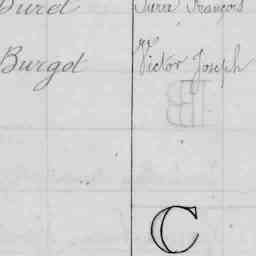 Duret Pierre François
Burgot Victor Joseph
C